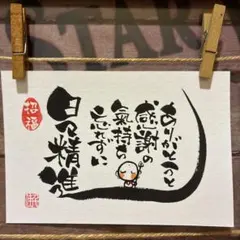 ありがとうと
感謝の
氣持ち
忘れずに
日々精進
招福